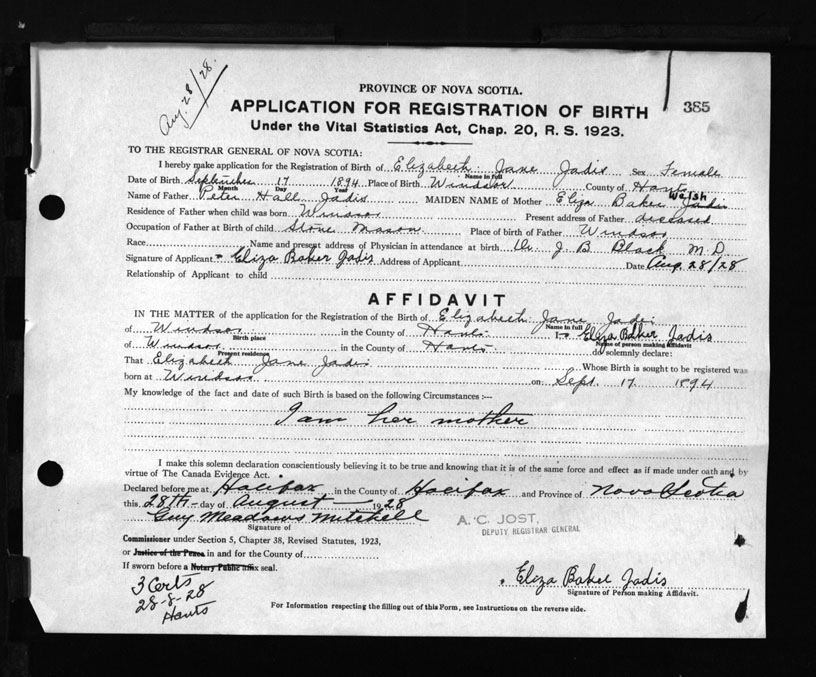 Aug. 28/28.
PROVINCE OF NOVA SCOTIA.
APPLICATION FOR REGISTRATION OF BIRTH
385
Under the Vital Statistics Act, Chap. 20, R. S. 1923.
TO THE REGISTRAR GENERAL OF NOVA SCOTIA:
I hereby make application for the Registration of Birth of Elizabeth Jane Jadis Sex Female
Name in full
Date of Birth September 17 1894 Place of Birth Windsor County of Hants
Month Day Year
Welsh
Name of Father Peter Hall Jadis MAIDEN NAME of Mother Eliza Baker Jadis
Residence of Father when child was born Windsor Present address of Father deceased
Occupation of Father at Birth of child Stone Mason Place of birth of Father Windsor
Race Name and present address of Physician in attendance at birth Dr J B Black M.D
Signature of Applicant Eliza Baker Jadis Address of Applicant Date Aug. 28/28
Relationship of Applicant to child
AFFIDAVIT
IN THE MATTER of the application for the Registration of the Birth of Elizabeth Jane Jadis
Name in full
of Windsor in the County of Hants I Eliza Baker Jadis
Birth place Name of person making Affidavit
of Windsor in the County of Hants do solemnly declare:
Present residence
That Elizabeth Jane Jadis Whose Birth is sought to be registered was
born at Windsor on Sept. 17 1894
My knowledge of the fact and date of such Birth is based on the following Circumstances :—
I am her mother
I make this solemn declaration conscientiously believing it to be true and knowing that it is of the same force and effect as if made under oath and by
virtue of The Canada Evidence Act.
Declared before me at Halifax in the County of Halifax and Province of Nova Scotia
this 28th day of August 1928
Guy Meadows Mitchell
Signature of
A. C. JOST,
DEPUTY REGISTRAR GENERAL
Commissioner under Section 5, Chapter 38, Revised Statutes, 1923,
or Justice of the Peace in and for the County of
If sworn before a Notary Public affix seal.
3 Certs
28-8-28
Hants
Eliza Baker Jadis
Signature of Person making Affidavit.
For Information respecting the filling out of this Form, see Instructions on the reverse side.